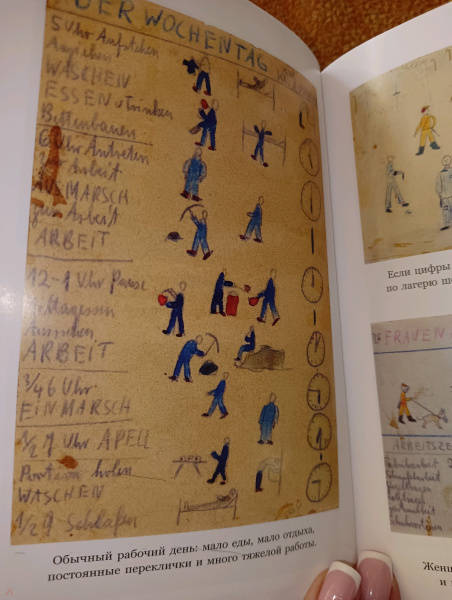 DER WOCHENTAG
5 Uhr Aufstehen
Anziehen
WASCHEN
ESSEN u Trinken
Bettenbauen
6 Uhr Antreten
zur Arbeit
AUSMARSCH
zur Arbeit
ARBEIT
12-1 Uhr Pause
Mittagessen
Ausruhen
ARBEIT
3/4 6 Uhr
EINMARSCH
1/2 7 Uhr APELL
Portion holen
WASCHEN
1/2 9 Schlafen
Обычный рабочий день: мало еды, мало отдыха,
постоянные переклички и много тяжелой работы.
Если цифры
по лагерю
FRAUEN
ARBEITSZE